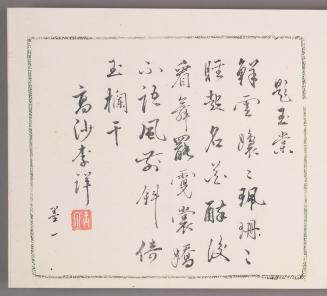 題玉棠
鮮雲〻珮珊〻
睡起名花醉後
看舞罷霓裳嬌
不語風前斜倚
玉欄干
高沙李詳